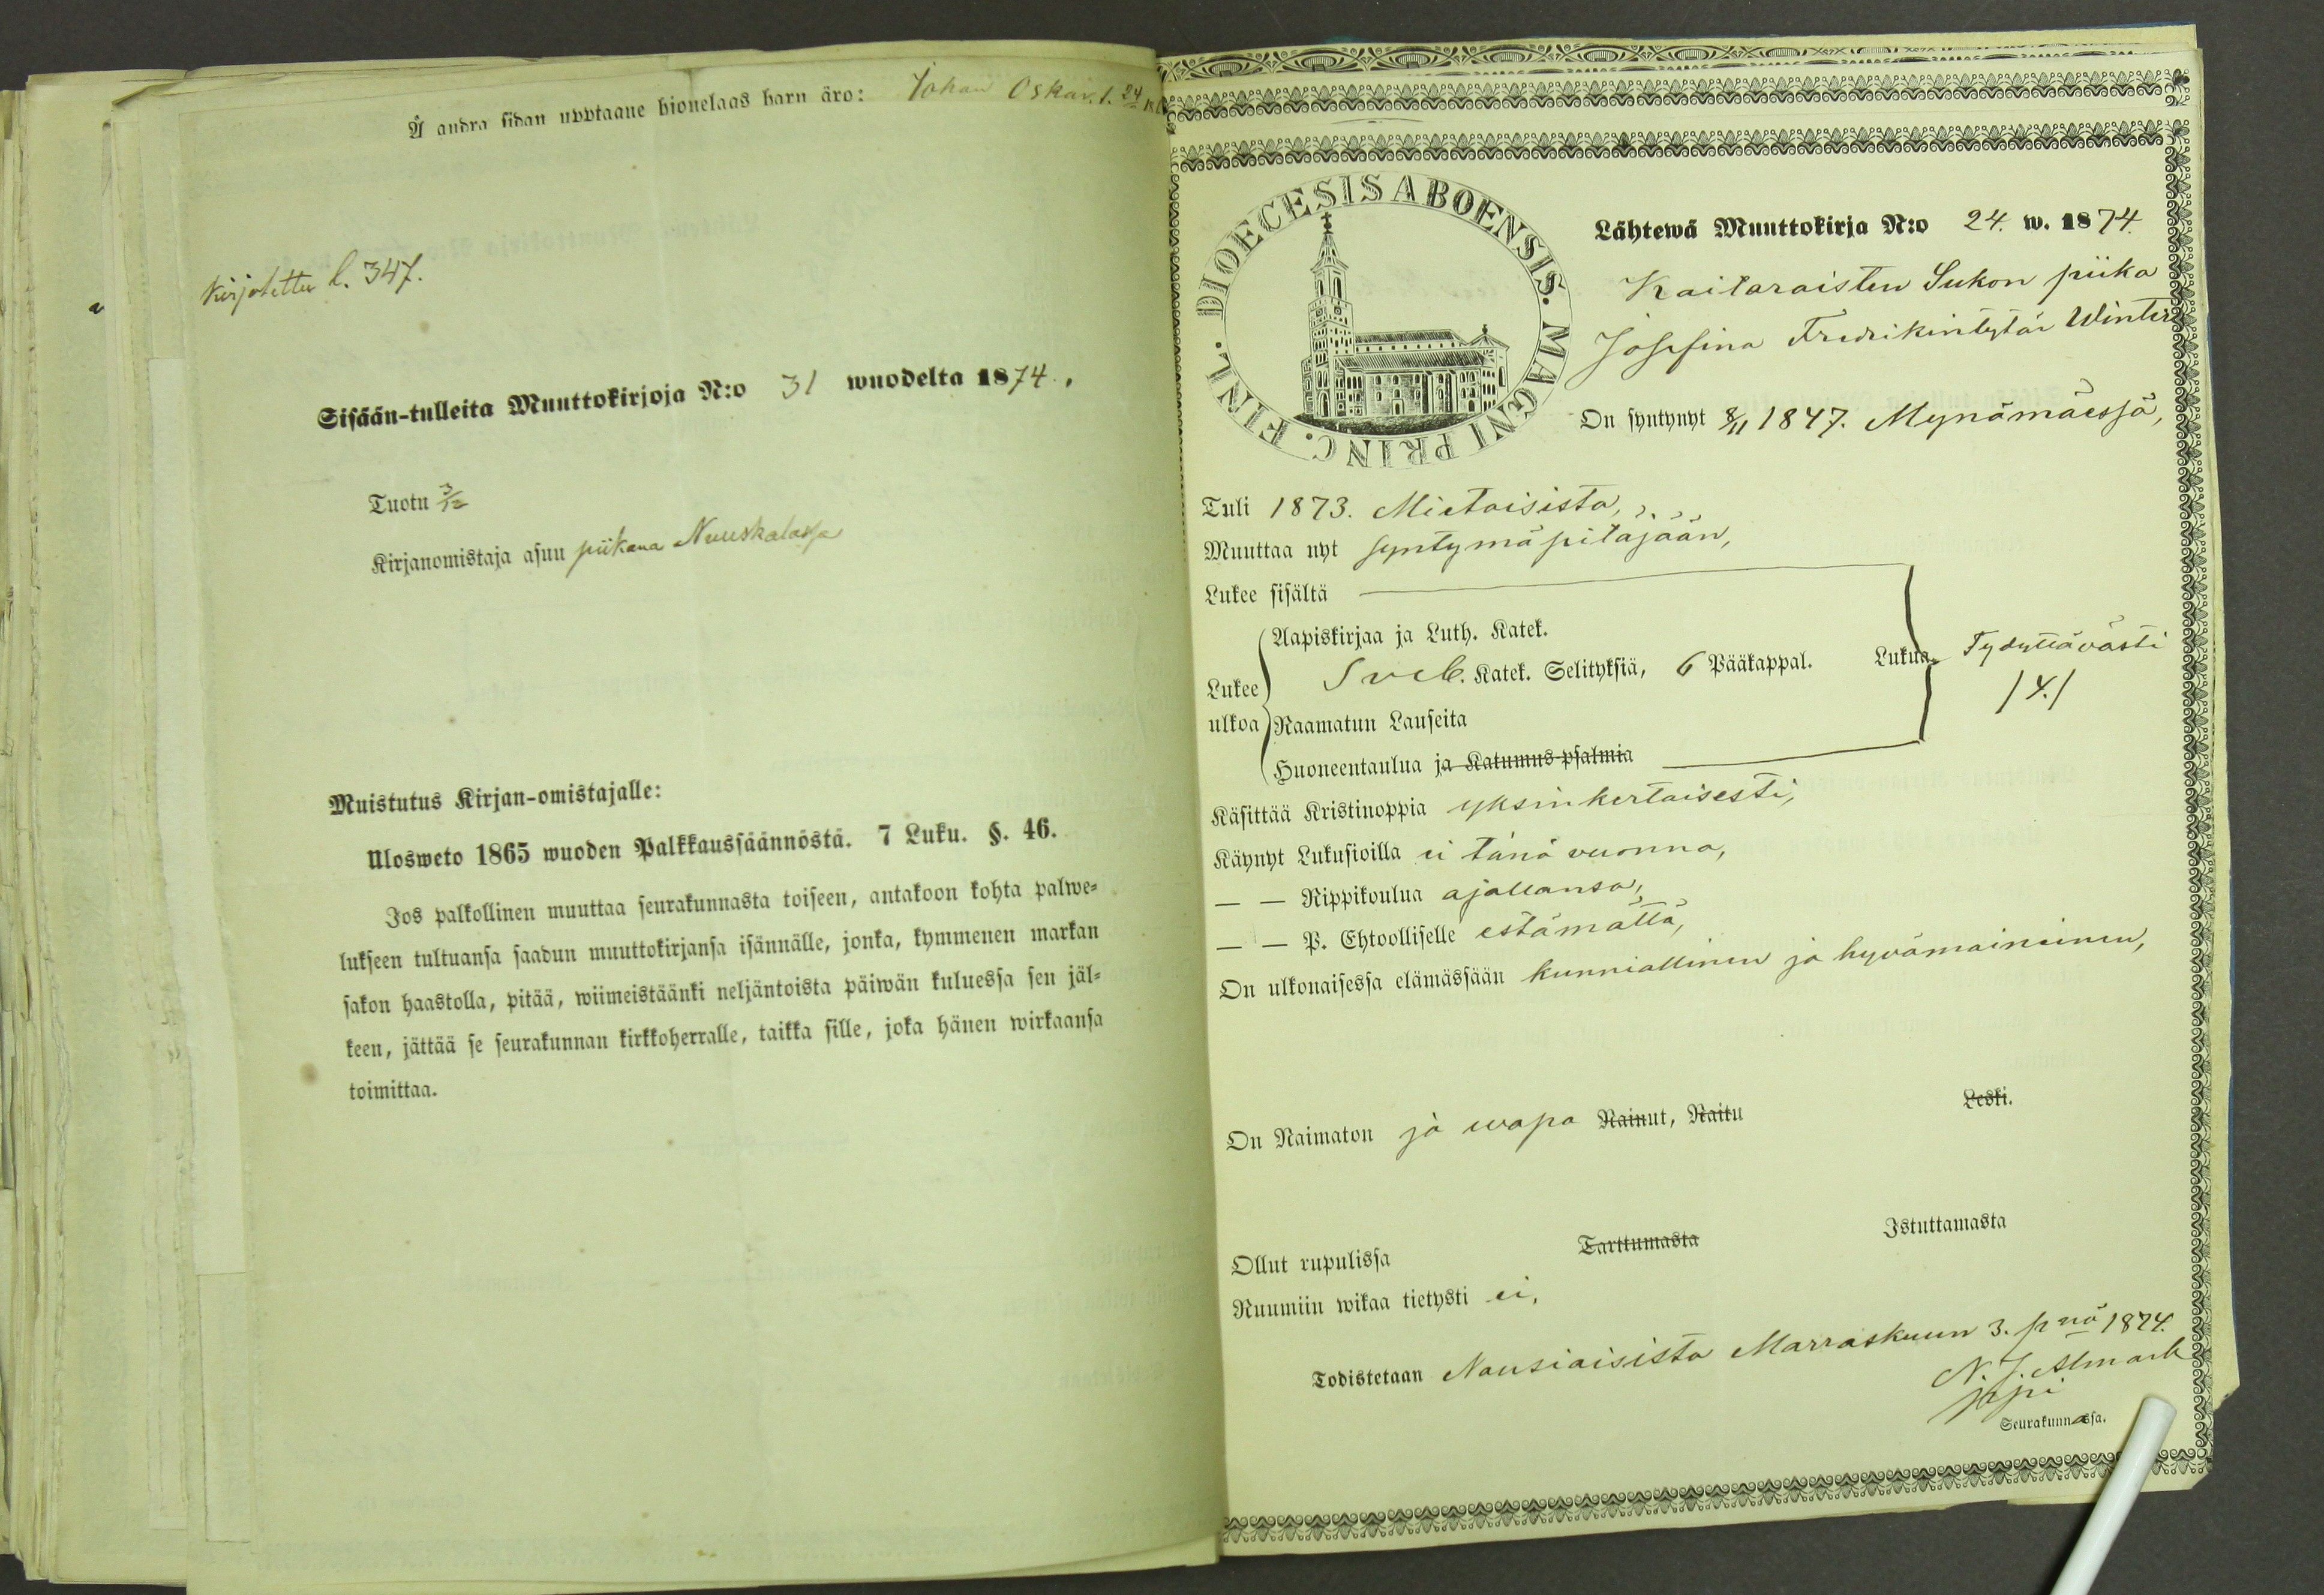 Å andra sidan upptagne hjonelags barn äro: Johan Oskar. f. 24
Kirjotettu l. 347.
Sisään-tulleita Muuttokirjoja N:o 31 wuodelta 1874.
Tuotu 3/12
Kirjanomistaja asuu piikana Nuuskalassa
Muistutus Kirjan-omistajalle:
Ulosweto 1865 wuoden Palkkaussäännöstä. 7 Luku. §. 46.
Jos palkollinen muuttaa seurakunnasta toiseen, antakoon kohta palwe-
lukseen tultuansa saadun muuttokirjansa isännälle, jonka, kymmenen markan
sakon haastolla, pitää, wiimeistäänki neljäntoista päiwän kuluessa sen jäl-
keen, jättää se seurakunnan kirkkoherralle, taikka sille, joka hänen wirkaansa
toimittaa.
DIOECESIS ABOENSIS. MAGNI PRINC. FINL.
Lähtewä Muuttokirja N:o 24. w. 1874.
Kaitaraisten Sukon piika
Josefina Fredrikintytär Winter
On syntynyt 8/11 1847. Mynämäessä,
Tuli 1873. Mietoisista,
Muuttaa nyt syntymäpitäjään,
Lukee sisältä
Aapiskirjaa ja Luth. Katek.
Lukee ulkoa Sveb. Katek. Selityksiä, 6 Pääkappal. Lukua Tydyttävästi
/4./
Raamatun Lauseita
Huoneentaulua ja Katumus-psalmia
Käsittää Kristinoppia yksinkertaisesti,
Käynyt Lukusioilla ei tänä vuonna,
— — Rippikoulua ajallansa,
— — P. Ehtoolliselle estämättä,
On ulkonaisessa elämässään kunniallinen ja hyvämaineinen,
On Naimaton ja wapa Nainut, Naitu Leski.
Ollut rupulissa Tarttumasta Istuttamasta
Ruumiin wikaa tietysti ei,
Todistetaan Nousiaisista Marraskuun 3. pnä 1874.
N. J. Almark
Seurakunnassa.